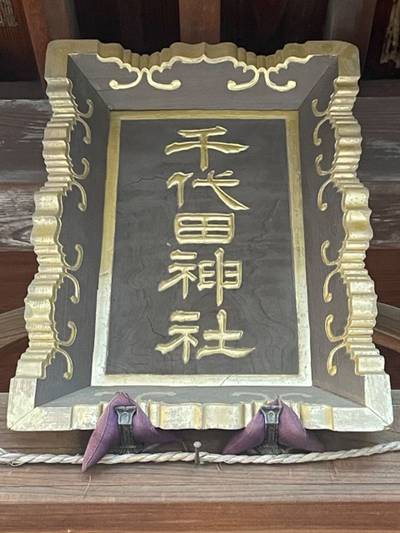 千代田神社